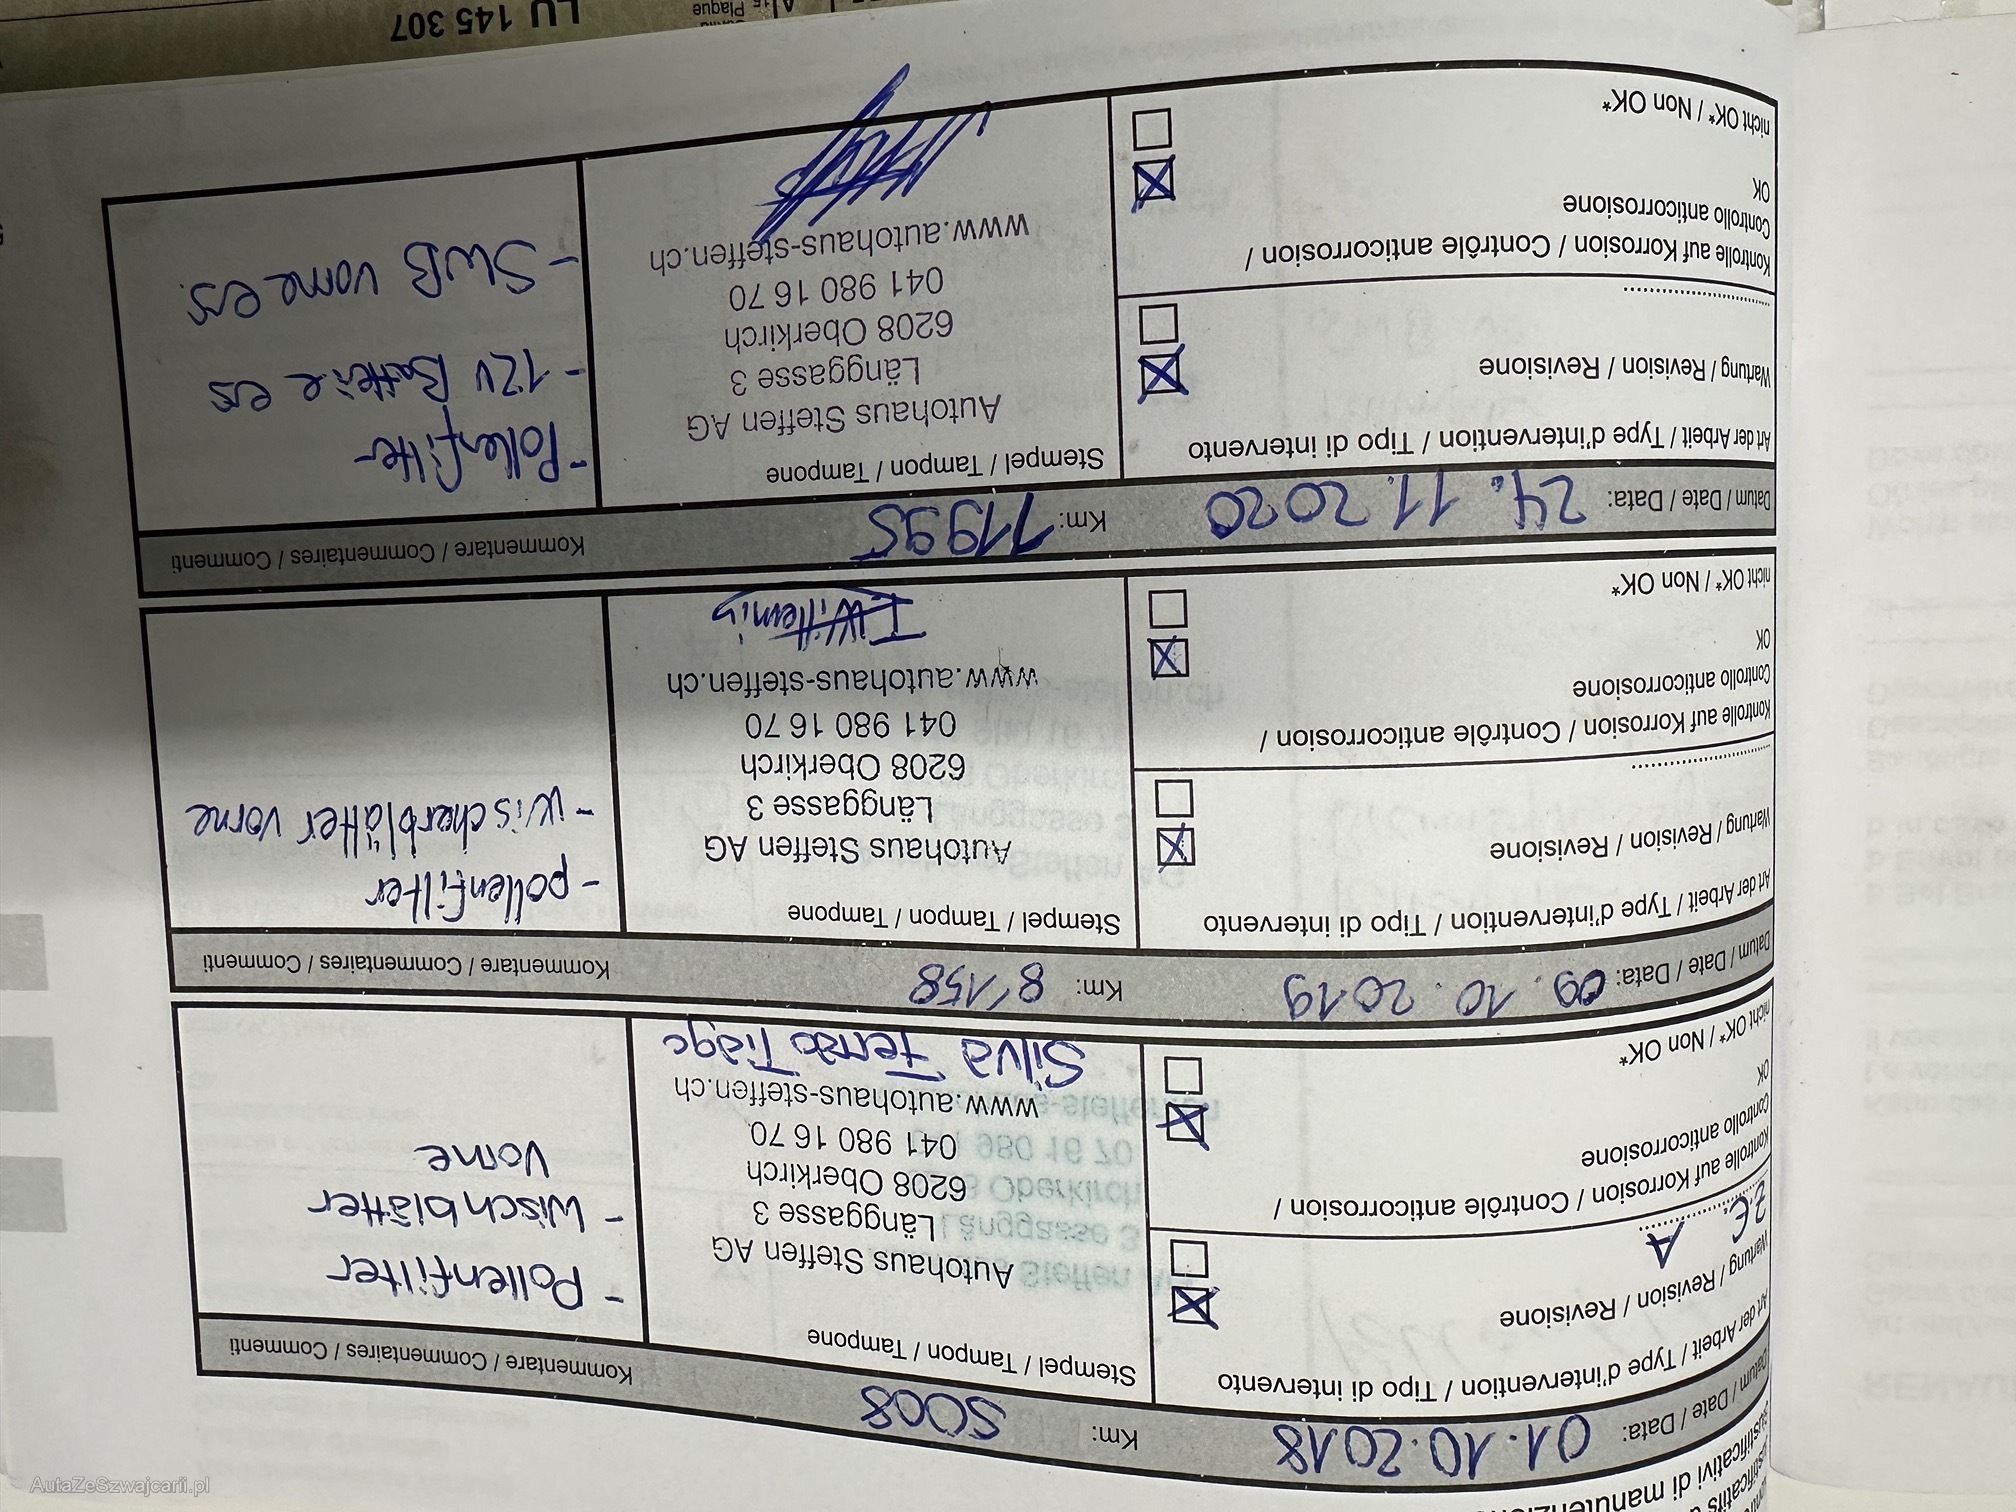 Justificatifs d
Giustificativi di manutenzione
Datum / Date / Data: 01.10.2018 Km: 5008 Kommentare / Commentaires / Commenti
Art der Arbeit / Type d'intervention / Tipo di intervento
Wartung / Revision / Revisione
Z.E. A
Kontrolle auf Korrosion / Contrôle anticorrosion /
Controllo anticorrosione
OK
nicht OK* / Non OK*
Stempel / Tampon / Tampone
Autohaus Steffen AG
Länggasse 3
6208 Oberkirch
041 980 16 70
www.autohaus-steffen.ch
Silva Ferrao Tiago
- Pollenfilter
- Wischblätter
vorne
Datum / Date / Data: 09.10.2019 Km: 8'158 Kommentare / Commentaires / Commenti
Art der Arbeit / Type d'intervention / Tipo di intervento
Wartung / Revision / Revisione
Kontrolle auf Korrosion / Contrôle anticorrosion /
Controllo anticorrosione
OK
nicht OK* / Non OK*
Stempel / Tampon / Tampone
Autohaus Steffen AG
Länggasse 3
6208 Oberkirch
041 980 16 70
www.autohaus-steffen.ch
- pollenfilter
- wischerblätter vorne
Datum / Date / Data: 24.11.2020 Km: 11995 Kommentare / Commentaires / Commenti
Art der Arbeit / Type d'intervention / Tipo di intervento
Wartung / Revision / Revisione
Kontrolle auf Korrosion / Contrôle anticorrosion /
Controllo anticorrosione
OK
nicht OK* / Non OK*
Stempel / Tampon / Tampone
Autohaus Steffen AG
Länggasse 3
6208 Oberkirch
041 980 16 70
www.autohaus-steffen.ch
- Pollenfilter
- 12V Batterie ers
- SWB vorne ers.
Plaque
LU 145 307
AutaZeSzwajcarii.pl